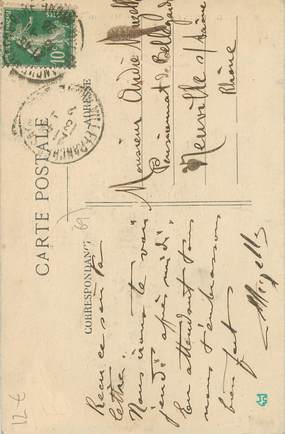 CARTE POSTALE
CORRESPONDANCE
ADRESSE
10c
Reçu ce soir ta
lettre.
Nous irons te voir
jeudi après midi.
En attendant tous
nous t'embrassons
bien fort
Monsieur André
Pensionnat de Bellegarde
Neuville s/ Saône
Rhône
69
12 €